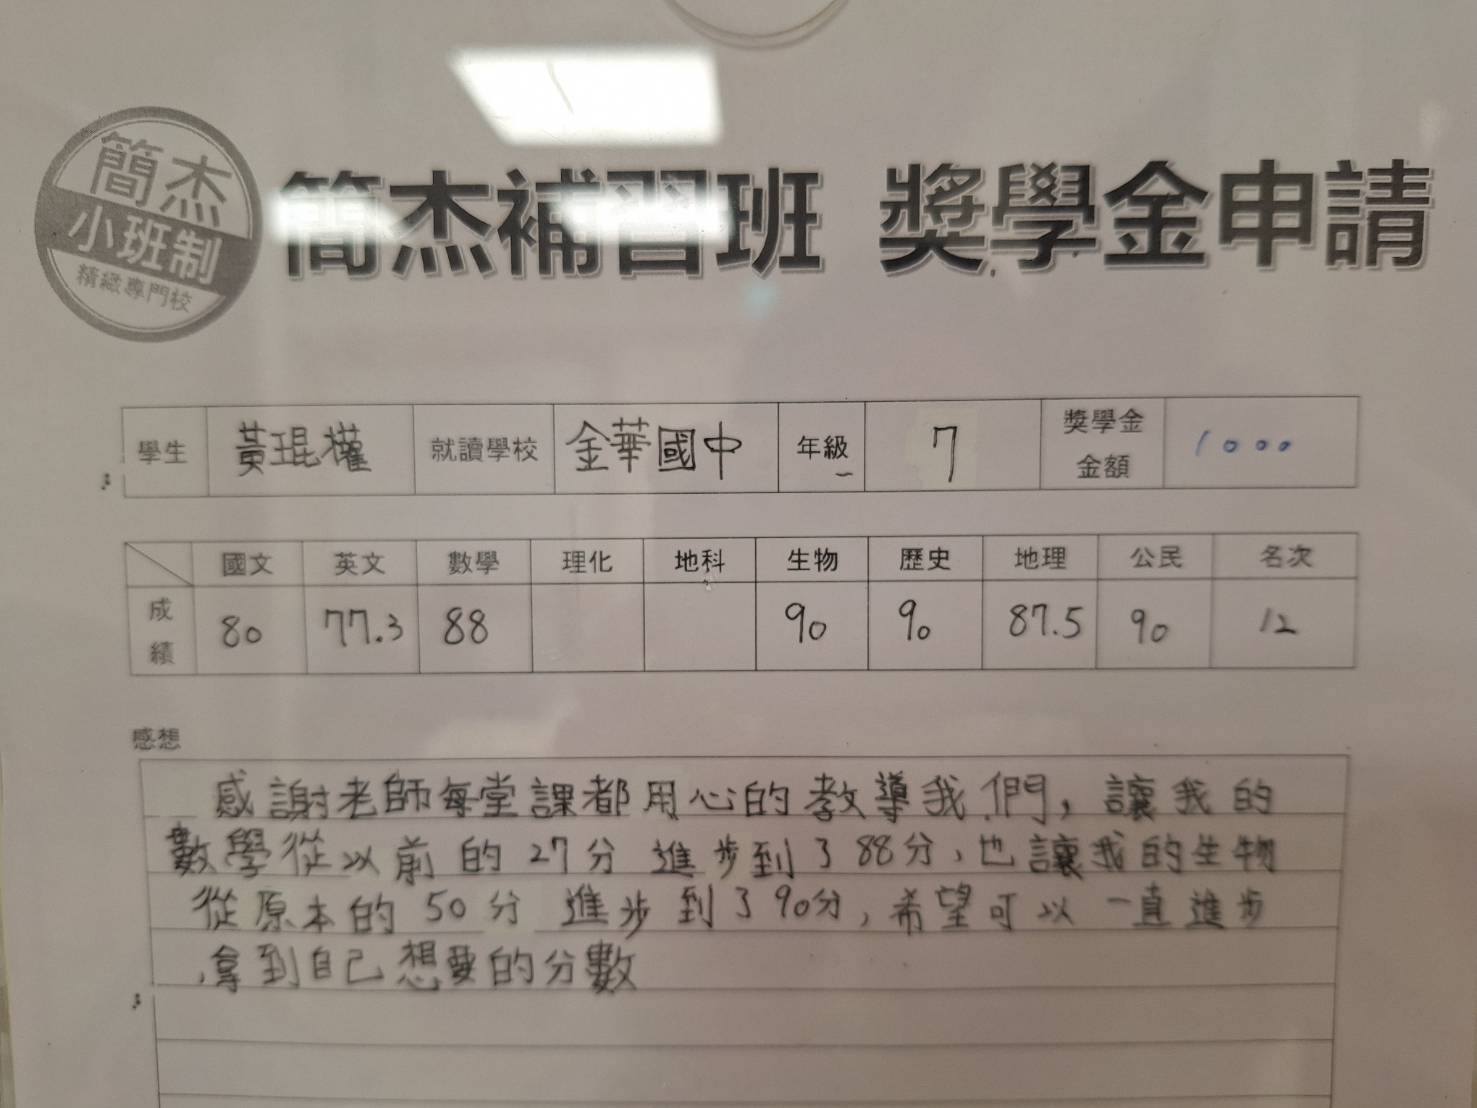 簡杰
小班制
精緻專門校
簡杰補習班 獎學金申請
學生 黃琨權 就讀學校 金華國中 年級 7 獎學金金額 1000
國文 英文 數學 理化 地科 生物 歷史 地理 公民 名次
成績 80 77.3 88 90 90 87.5 90 12
感想
感謝老師每堂課都用心的教導我們，讓我的
數學從以前的27分進步到了88分，也讓我的生物
從原本的50分進步到了90分，希望可以一直進步
，拿到自己想要的分數